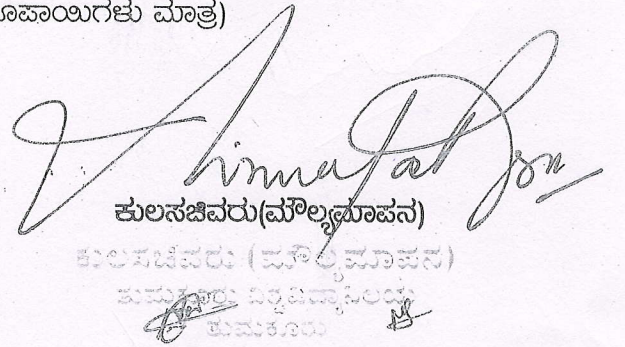 ೂಪಾಯಿಗಳು ಮಾತ್ರ)
ಕುಲಸಚಿವರು(ಮೌಲ್ಯಮಾಪನ)
ಕುಲಸಚಿವರು (ಮೌಲ್ಯಮಾಪನ)
ತುಮಕೂರು ವಿಶ್ವವಿದ್ಯಾನಿಲಯ
ತುಮಕೂರು